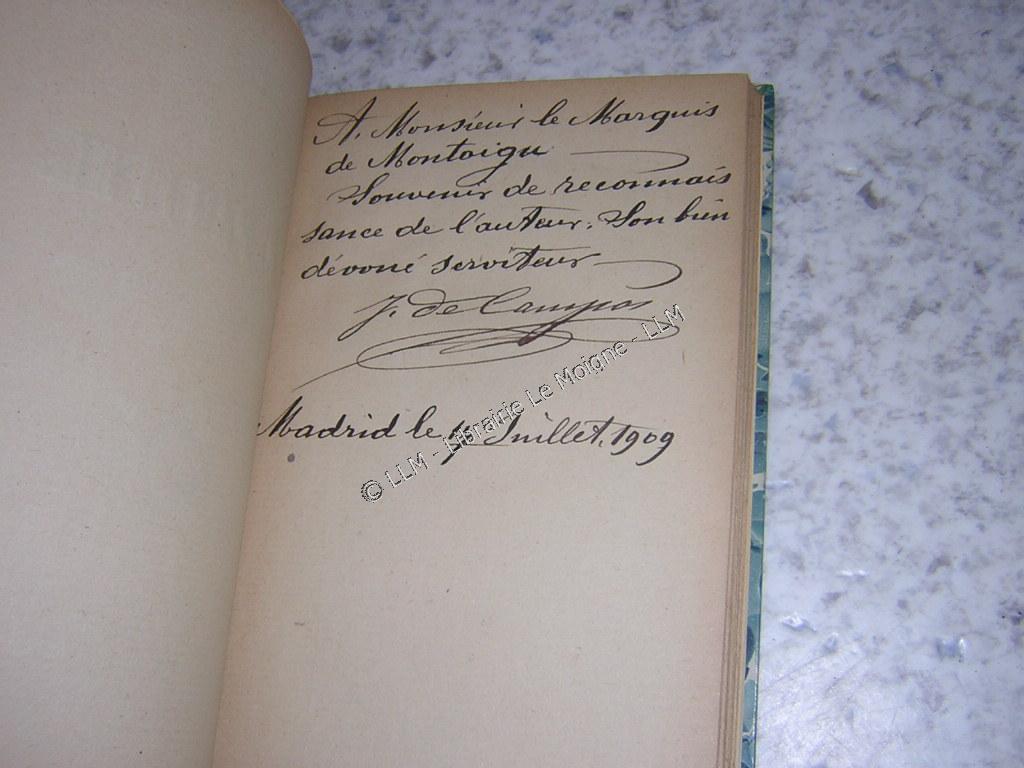 A. Monsieur le Marquis
de Montaigu
Souvenir de reconnais
sance de l'auteur. Son bien
dévoué serviteur
J. de Campos
Madrid le Juillet, 1909
© LLM - Librairie Le Moigne - LLM